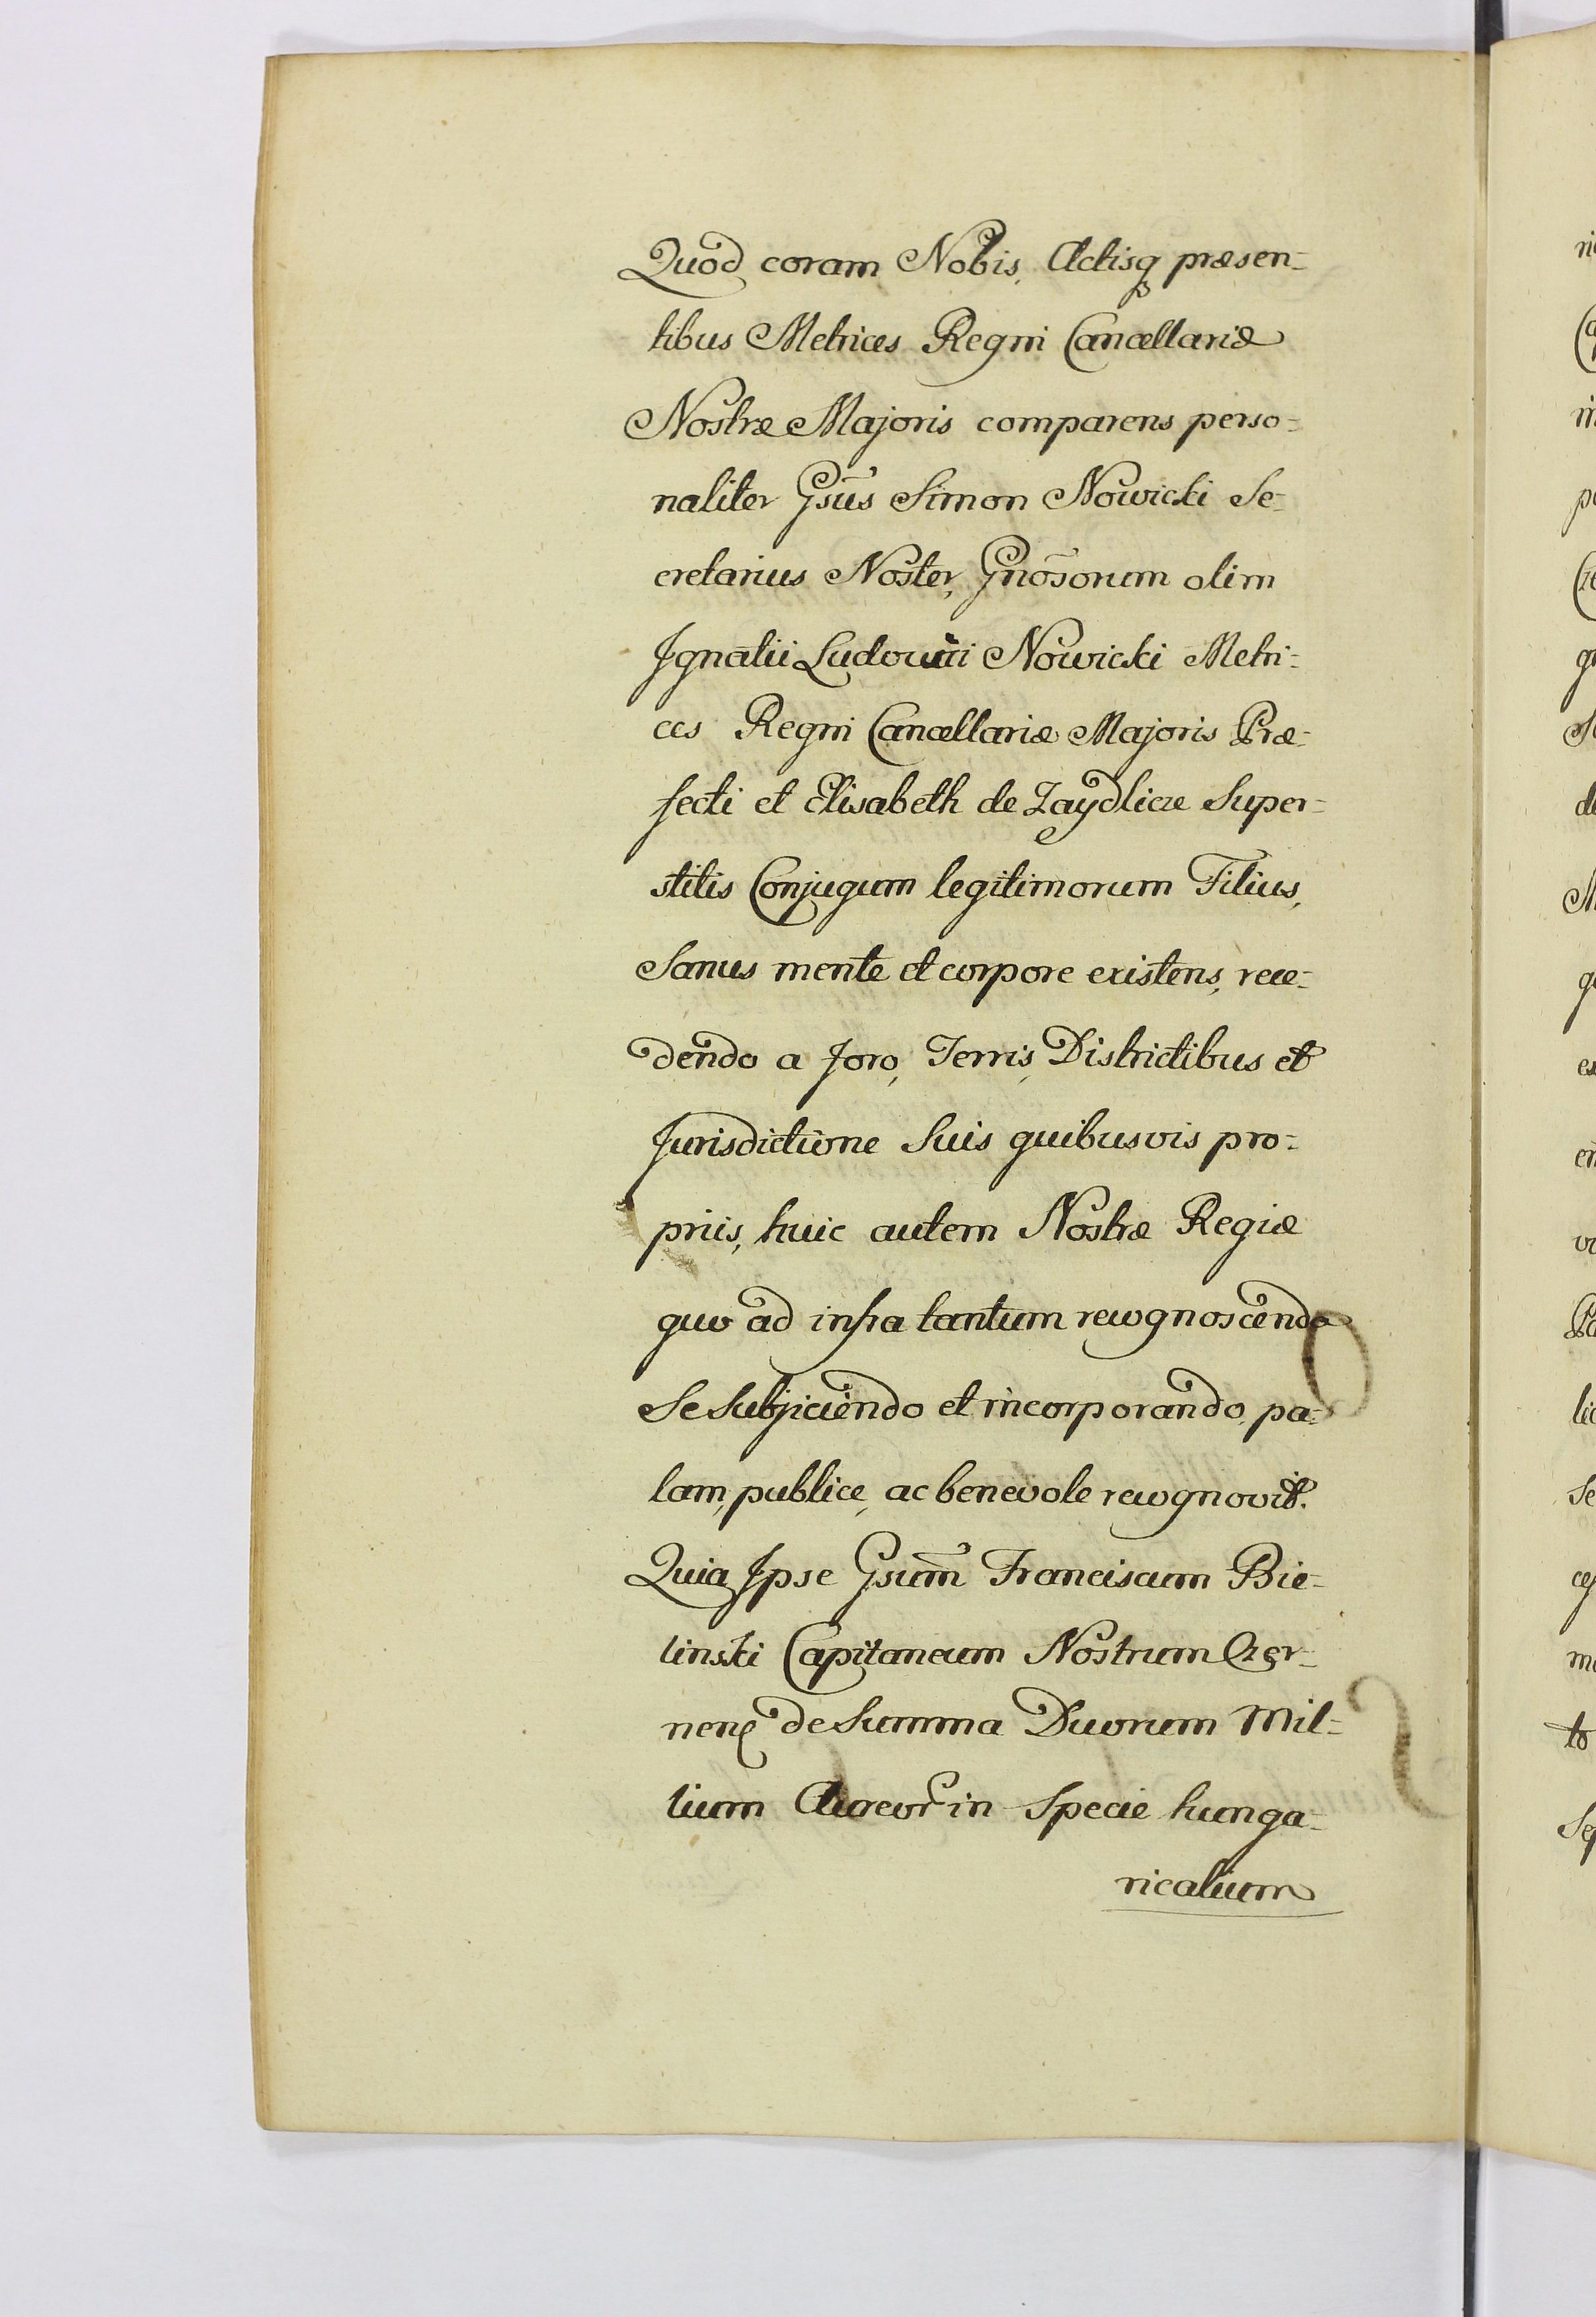 Quod coram Nobis, Actisq́ præsen=
tibus Metrices Regni Cancellariæ
Nostræ Majoris comparens perso=
naliter Gsūs Simon Nowicki Se=
cretarius Noster, Gnōsorum olim
Ignatii Ludovici Nowicki Metri=
ces Regni Cancellariæ Majoris Præ=
fecti et Elisabeth de Zaydlicze Super=
stitis Conjugum legitimorum Filius,
Sanus mente et corpore existens, rece=
dendo a foro, Terris, Districtibus et
Jurisdictione Suis quibusvis pro=
priis, huic autem Nostræ Regiæ
quo ad infra tantum recognoscenda
Se Subjiciendo et incorporando, pa=
lam, publice, ac benevole recognovit.
Quia Ipse Gsum̄ Franciscum Bie=
linski Capitaneum Nostrum Czer=
nenȩ de Summa Duorum Mil=
lium Aureor̄ in Specie hunga=
ricalium